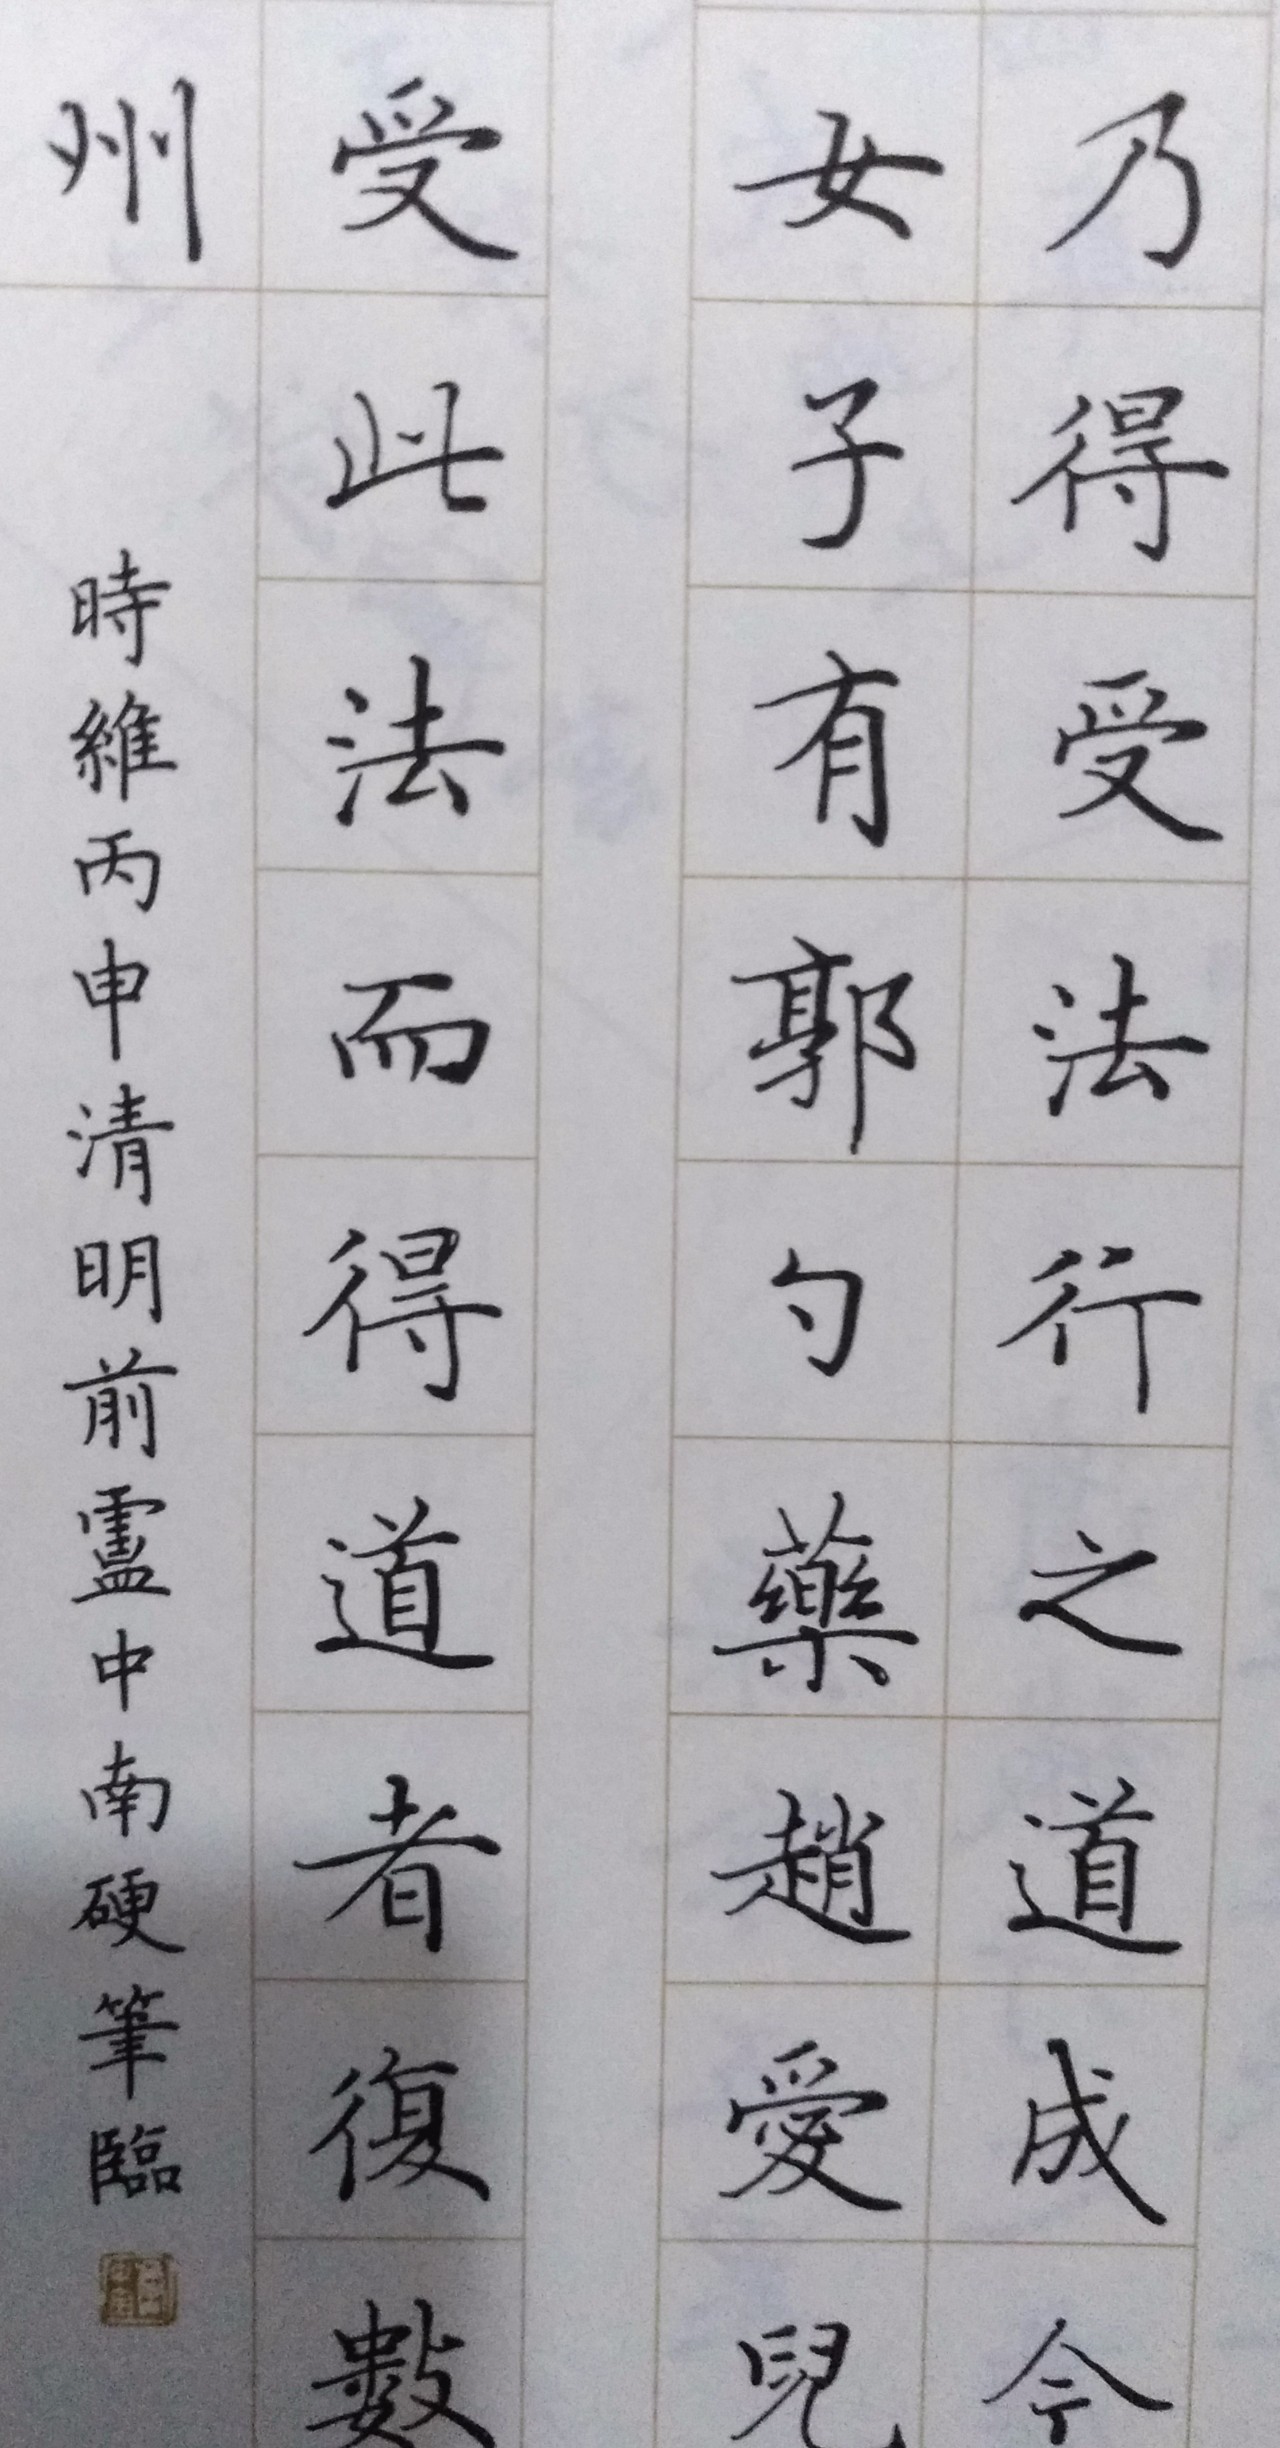 乃得受法行之道成今
女子有郭勺藥趙愛兒
受此法而得道者復數
州
時維丙申清明前盧中南硬筆臨